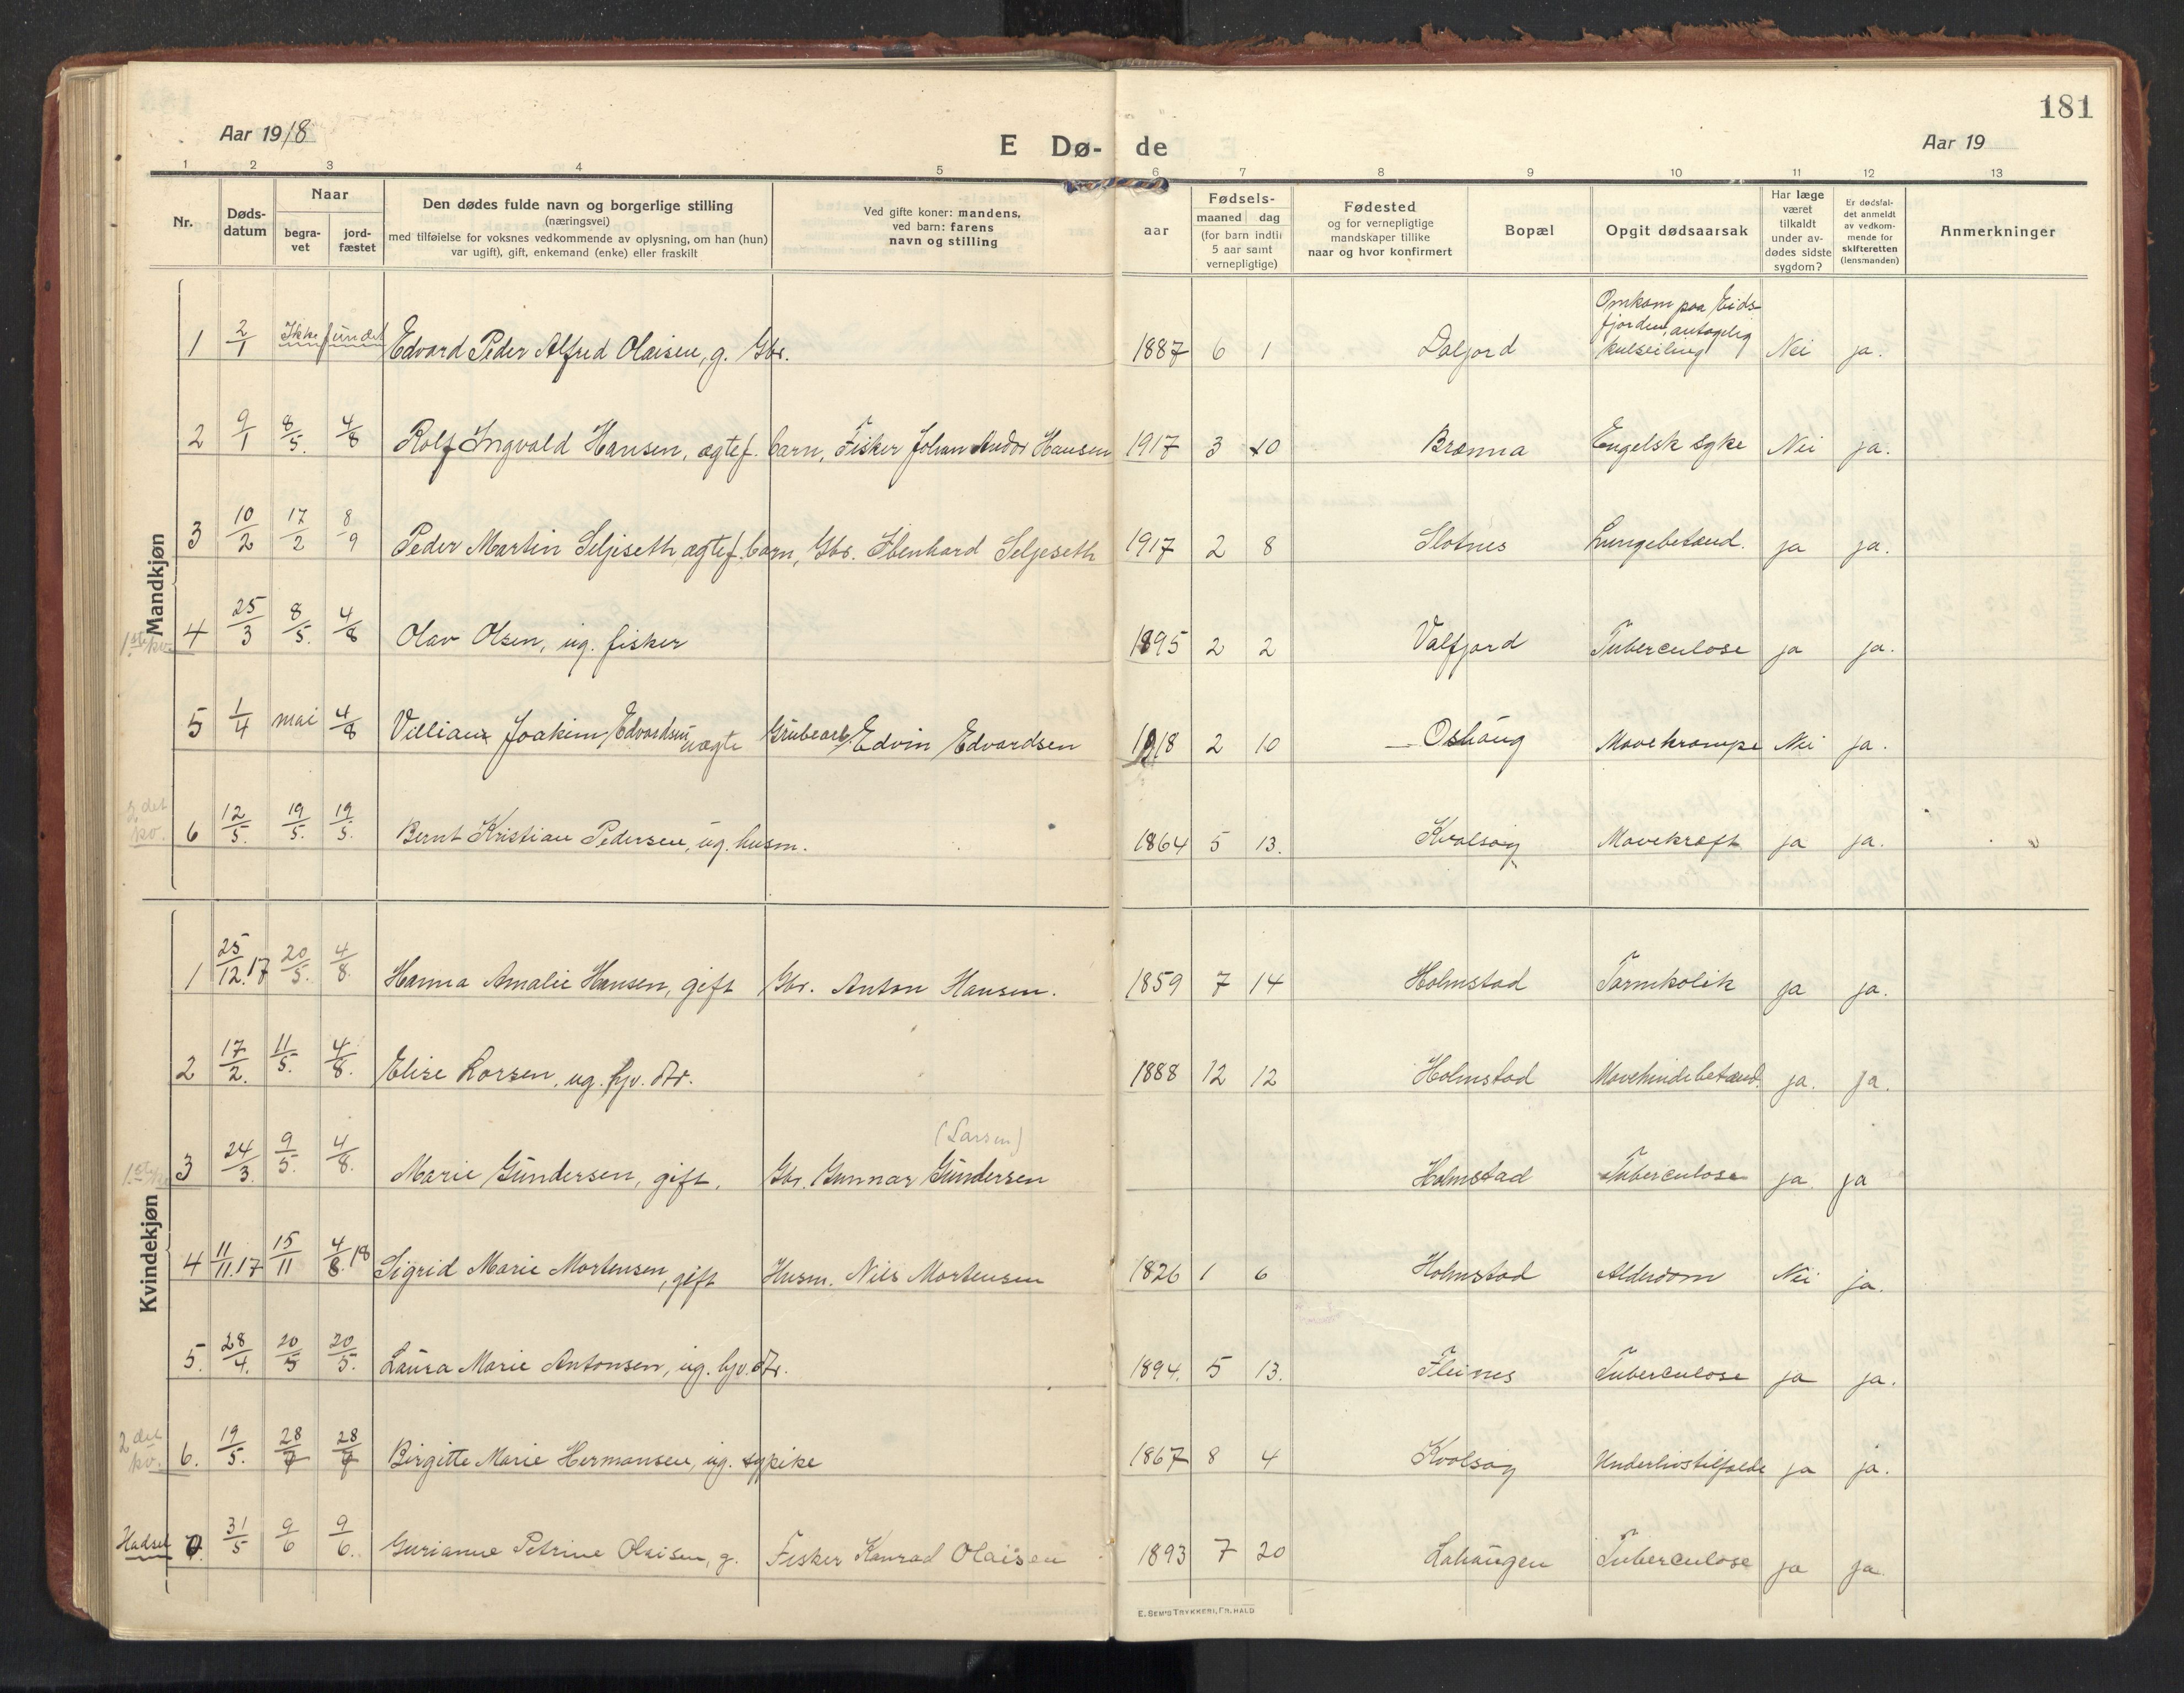 181
Aar 1918
E Dø-
de
Aar 19
1 2 3 4 5 6 7 8 9 10 11 12 13
Nr.
Døds-
datum
Naar
begra-
vet
jord-
fæstet
Den dødes fulde navn og borgerlige stilling
(næringsvei)
med tilføielse for voksnes vedkommende av oplysning, om han (hun)
var ugift), gift, enkemand (enke) eller fraskilt
Ved gifte koner: mandens,
ved barn: farens
navn og stilling
aar
Fødsels-
maaned dag
(for barn indtil
5 aar samt
vernepligtige)
Fødested
og for vernepligtige
mandskaper tillike
naar og hvor konfirmert
Bopæl
Opgit dødsaarsak
Har læge
været
tilkaldt
under av-
dødes sidste
sygdom?
Er dødsfal-
det anmeldt
av vedkom-
mende for
skifteretten
(lensmanden)
Anmerkninger
Mandkjøn
1 2/1 Ikke fundet Edvard Peder Alfred Olaisen, g. Gbr. 1887 6 1 Daljord Omkom paa Eids-
fjorden, antagelig
kulseiling Nei ja.
2 9/1 8/5. 4/8 Rolf Ingvald Hansen, ægtef. barn, Fisker Johan Andor Hansen 1917 3 10 Brænna Engelsk syke Nei ja.
3 10/2 17/2 8/9 Peder Martin Seljeseth, ægtef. barn, Gbr. Ebenhard Seljeseth 1917 2 8 Slotnes Lungebetænd. ja ja.
1ste kv. 4 25/3 8/5. 4/8 Olav Olsen, ug. fisker 1895 2 2 Valfjord Tuberculose ja ja.
5 1/4 mai 4/8 Villiam Joakim Edvardsen uægte Grubearb. Edvin Edvardsen 1918 2 10 Oshaug Mavekrampe Nei ja.
2det kv. 6 12/5. 19/5. 19/5. Bernt Kristian Pedersen, ug. husm. 1864 5 13. Kvalsøy Mavekræft ja ja.
Kvindekjøn
1 25/12.17 20/5. 4/8. Hanna Amalie Hansen, gift Gbr. Anton Hansen. 1859 7 14 Holmstad Tarmkolik ja ja.
2 17/2. 11/5. 4/8. Elise Larsen, ug. hjv. dtr. 1888 12 12 Holmstad Mavehindebetænd. ja. ja.
(Larsen)
1ste 3 24/3. 9/5. 4/8. Marie Gundersen, gift. Gbr. Gunnar Gundersen Holmstad Tuberculose ja. ja
4 11/11.17 15/11 4/8.18 Sigrid Marie Mortensen, gift Husm. Nils Mortensen 1826 1 6 Holmstad Alderdom Nei ja.
5. 28/4. 20/5 20/5. Laura Marie Antonsen, ug. hjv. dtr. 1894. 5 13. Fleines Tuberculose ja ja.
2det kv. 6. 19/5. 28/7 28/7 Birgitte Marie Hermansen, ug. sypike 1867 8 4 Kvalsøy Underlivstilfælde ja ja.
Hadsel 31/5 9/6 9/6. Gurianne Petrine Olaisen, g. Fisker Konrad Olaisen 1893 7 20 Lahaugen Tuberculose ja ja.
E. SEM'S TRYKKERI, FR. HALD